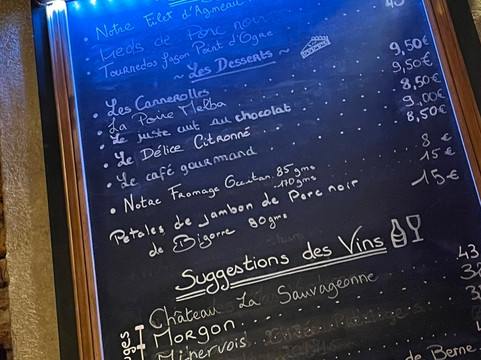 Notre Filet d'Agneau
Pieds de Porc noir
Tournedos façon Pont d'Ogre
43
~ Les Desserts ~
• Les Cannerolles 9,50€
• La Poire Melba 9,50€
• Le juste cuit au chocolat 8,50€
• Le Délice Citronné 9,00€
• Le café gourmand 8,50€
• Notre Fromage Occitan 85gms 8€
170gms 15€
Pétales de jambon de Porc noir
de Bigorre 80gms 15€
Suggestions des Vins
Château La Sauvageonne 43
Morgon
Minervois
de Berne